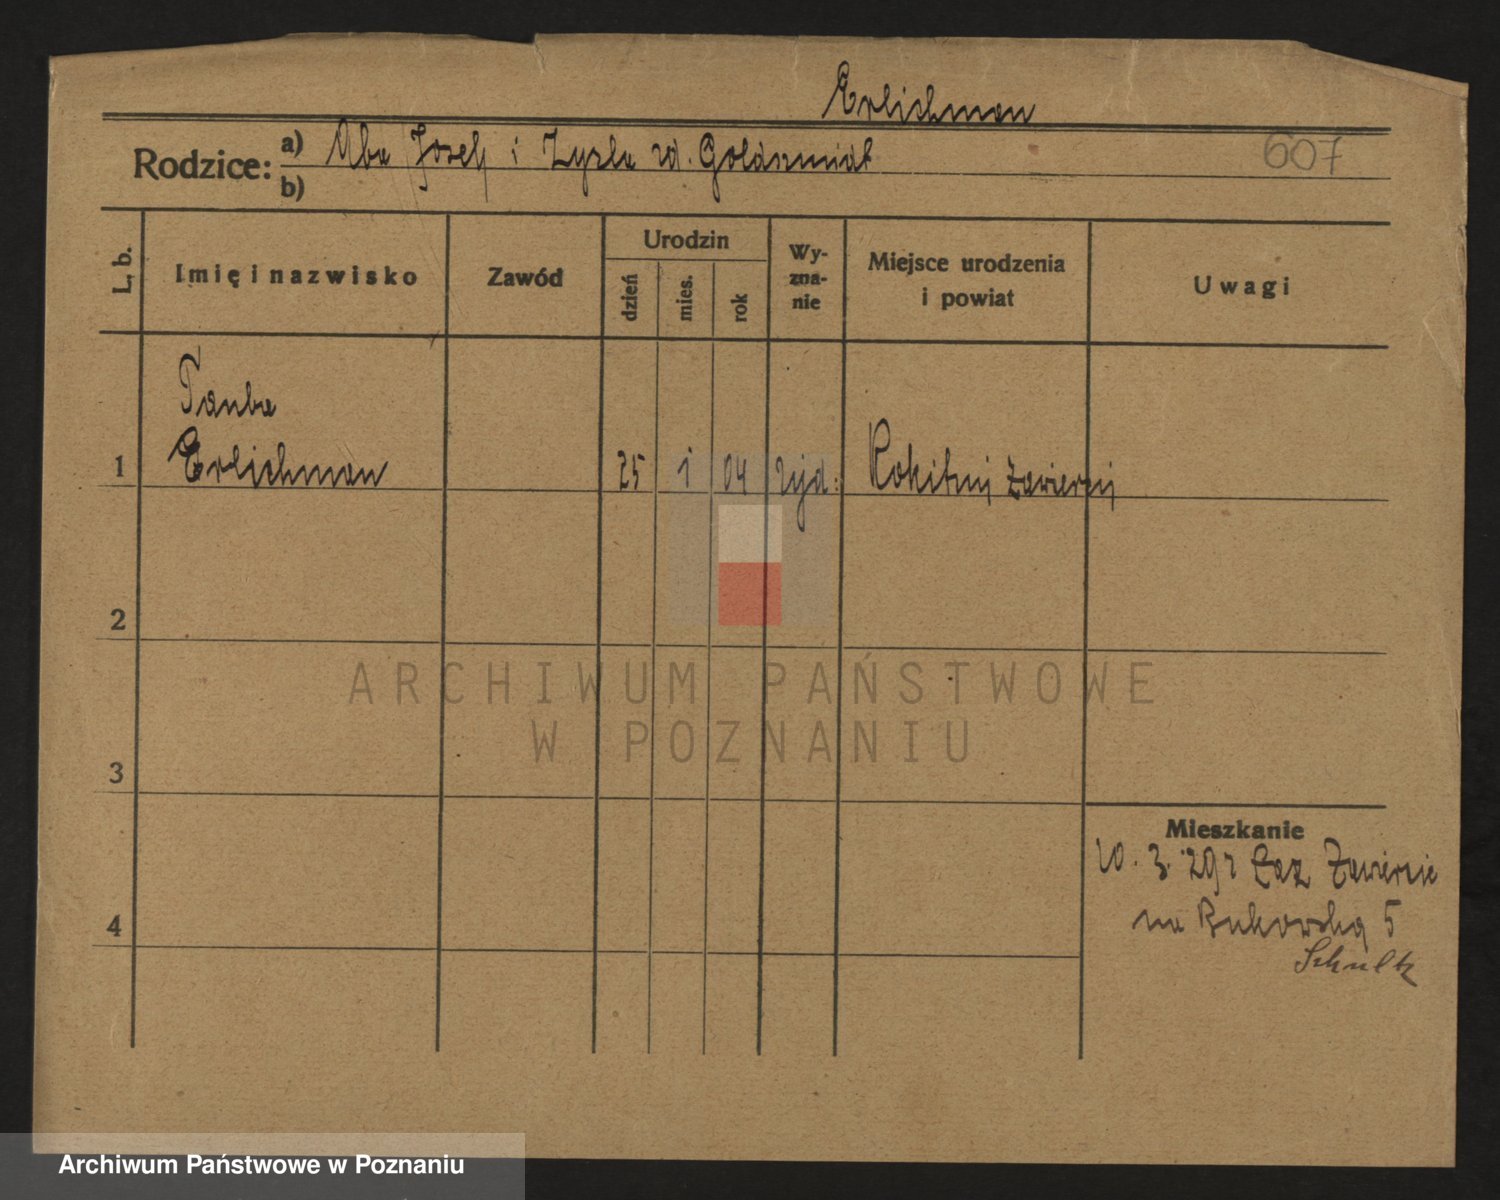 Erlichman
607
Rodzice:
a) Aba Josek i Zysla zd. Goldszmidt
b)
L. b.
Imię i nazwisko
Zawód
Urodzin
dzień
mies.
rok
Wy-
zna-
nie
Miejsce urodzenia
i powiat
Uwagi
Tauba
1 Erlichman 25 1 04 Rokitnij Zawiercij
2
ARCHIWUM PAŃSTWOWE
W POZNANIU
3
Mieszkanie
20. 3. 29 r Zawiercie
na Bukowską 5
Schultz
4
Archiwum Państwowe w Poznaniu